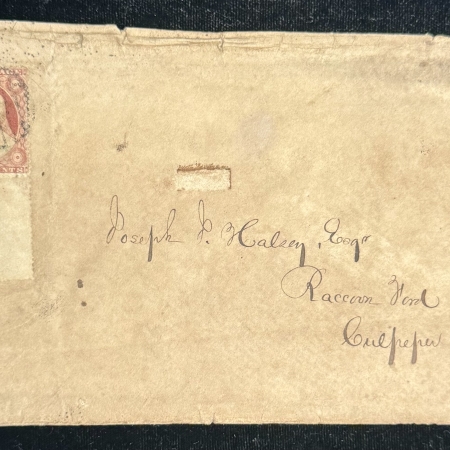 Joseph J. Halsey, Esqr
Raccoon Ford
Culpeper